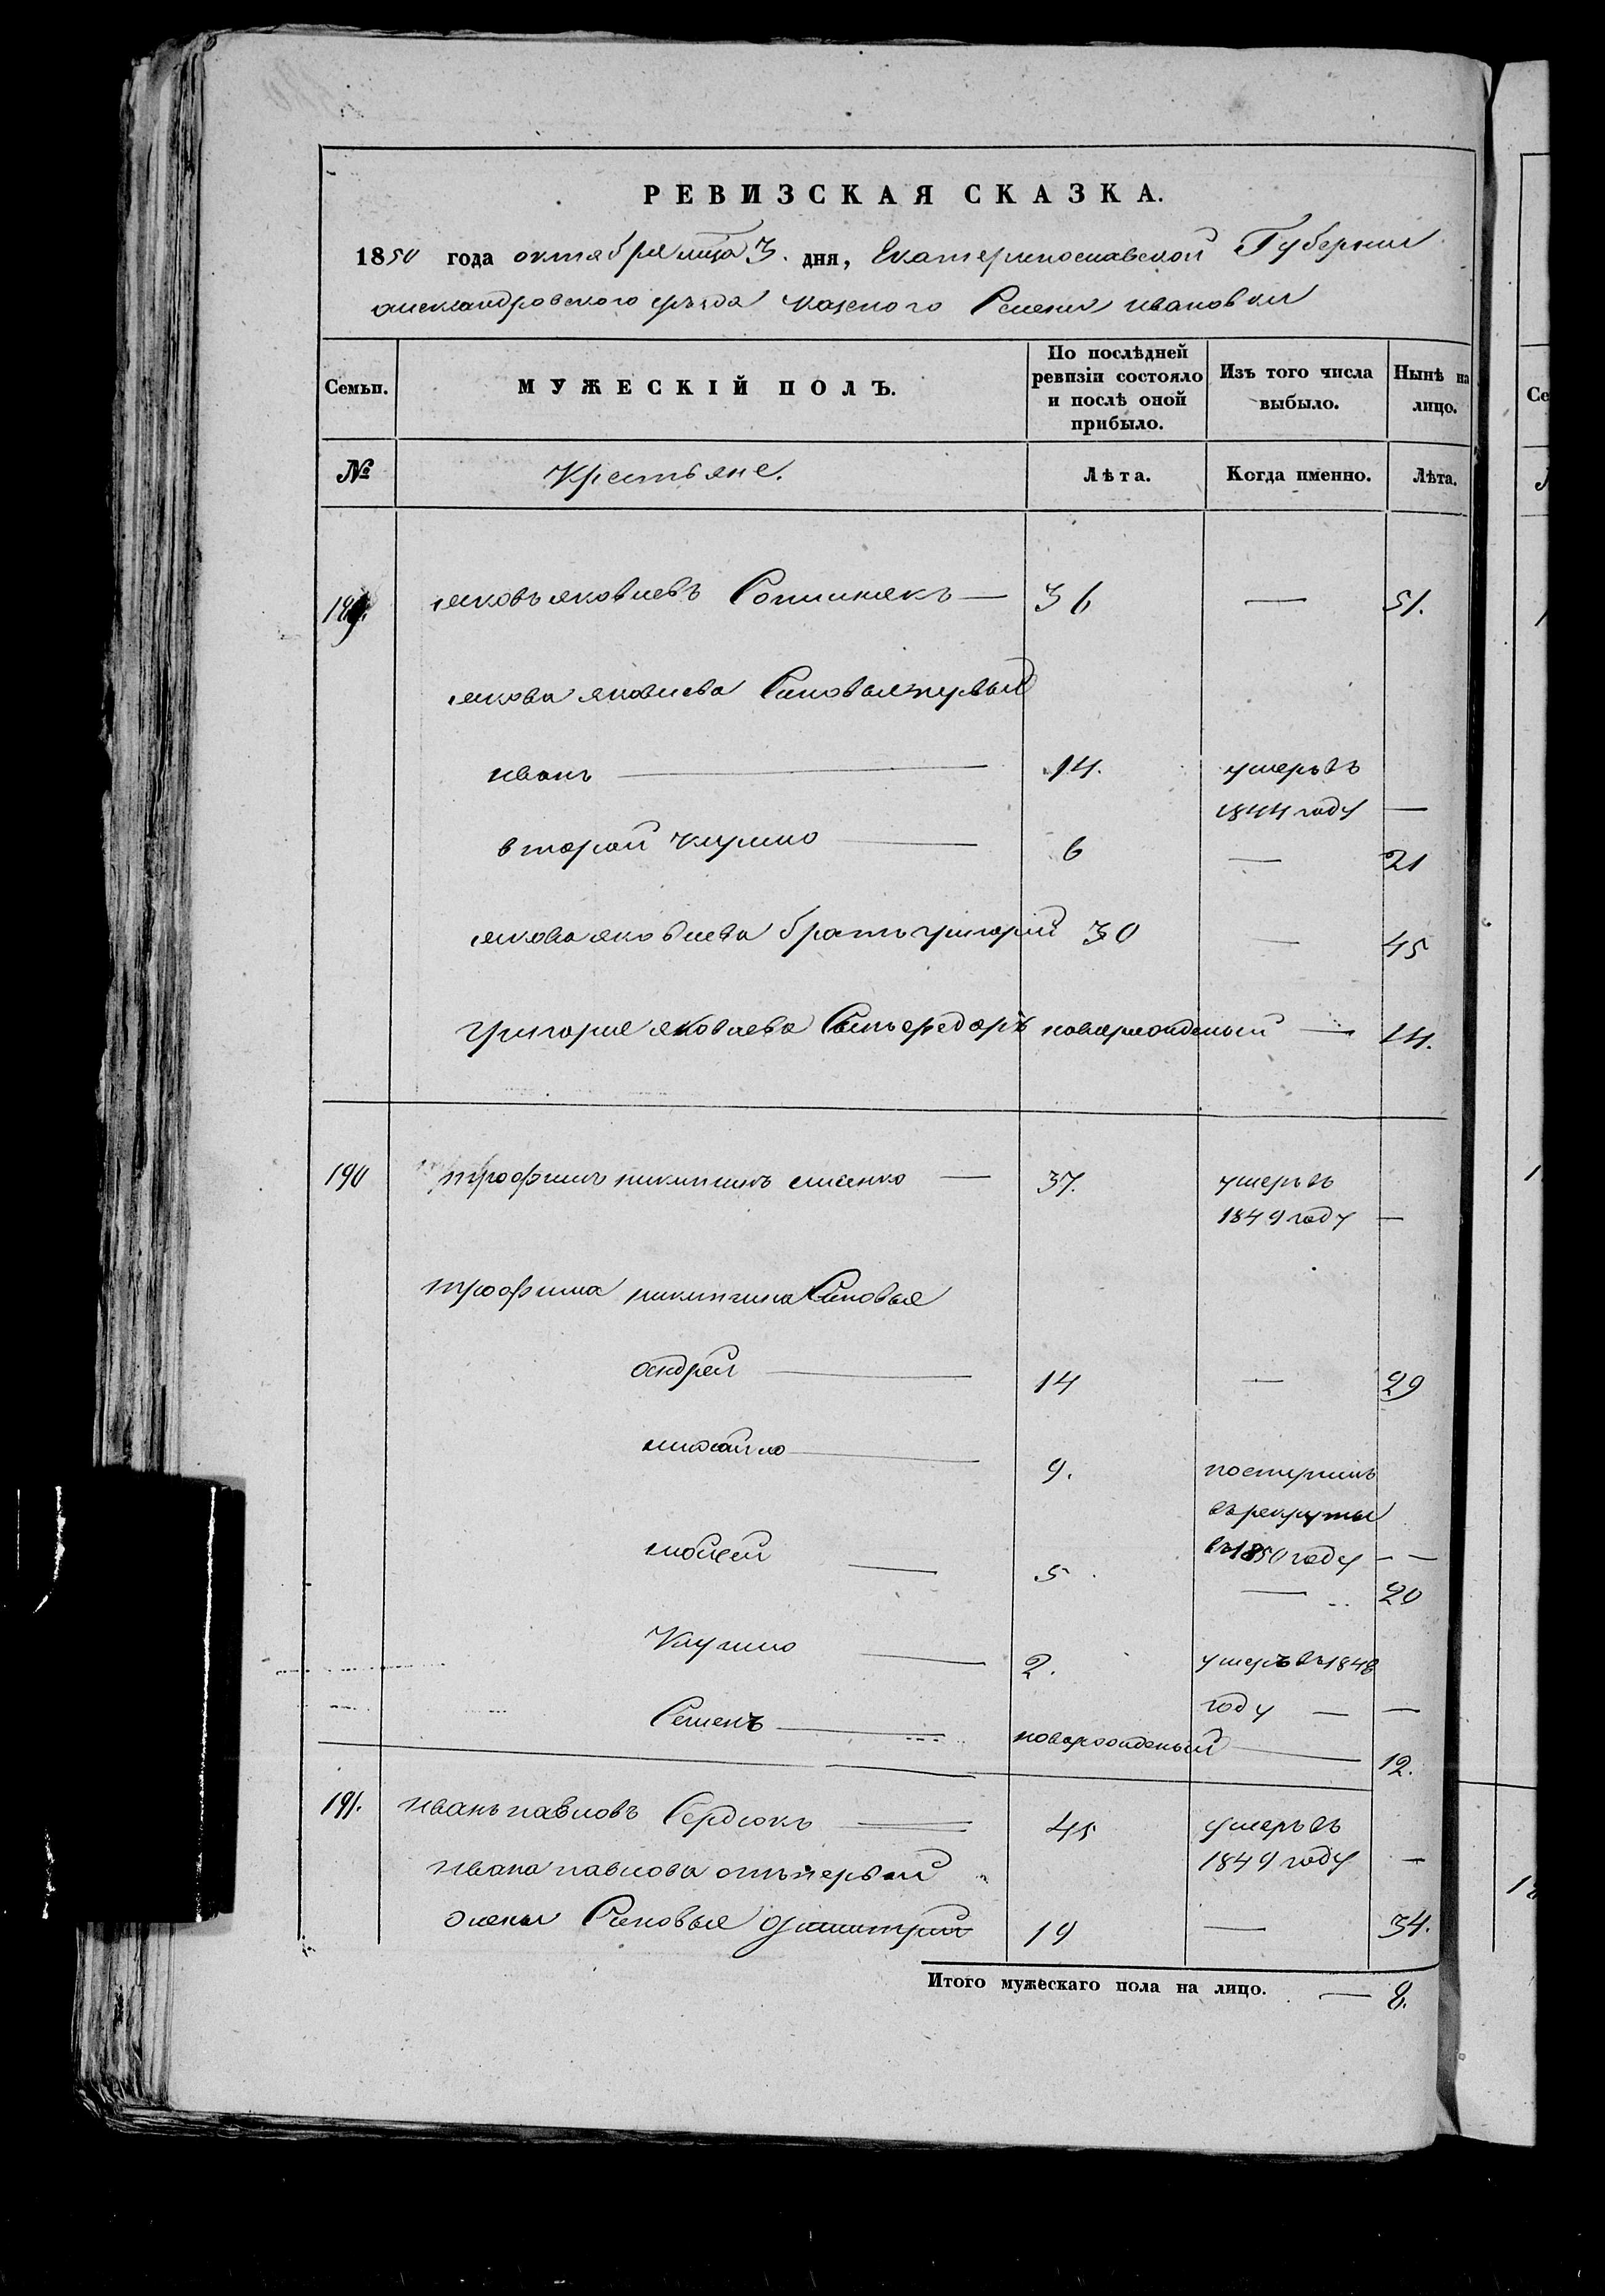 РЕВИЗСКАЯ СКАЗКА.
1850 года октября мца 3. дня, Екатеринославской Губернии
александровского уѣзда казеного Селения ивановки
Семьи. МУЖЕСКІЙ ПОЛЪ. По послѣдней ревизіи состояло и послѣ оной прибыло. Изъ того числа выбыло. Нынѣ на лицо.
№ Крестьяне. Лѣта. Когда именно. Лѣта.
189. яковъ яковлевъ — 36 — 51.
якова яковлева Синовья первый
иванъ — 14. умеръ въ
1844 году —
второй Клумно — 6 — 21
якова яковлева братъ григорий 30 — 45
григория яковлева Синъ федоръ новорожденый — 14.
190 трофимъ никитинъ — 37. умеръ въ
1849 году —
трофима никитина Синовья
андрей — 14 — 29
михайло — 9. поступилъ
въ рекруты
въ 1850 году — —
мойсей — 5 — 20
— 2. умеръ въ 1848
году — —
Семенъ — новорожденый — 12.
191. иванъ павловъ Сердюкъ — 45 умеръ въ
1849 году —
ивана павлова отъ первой
жены Синовья димитрий 19 — 34.
Итого мужескаго пола на лицо. — 8.